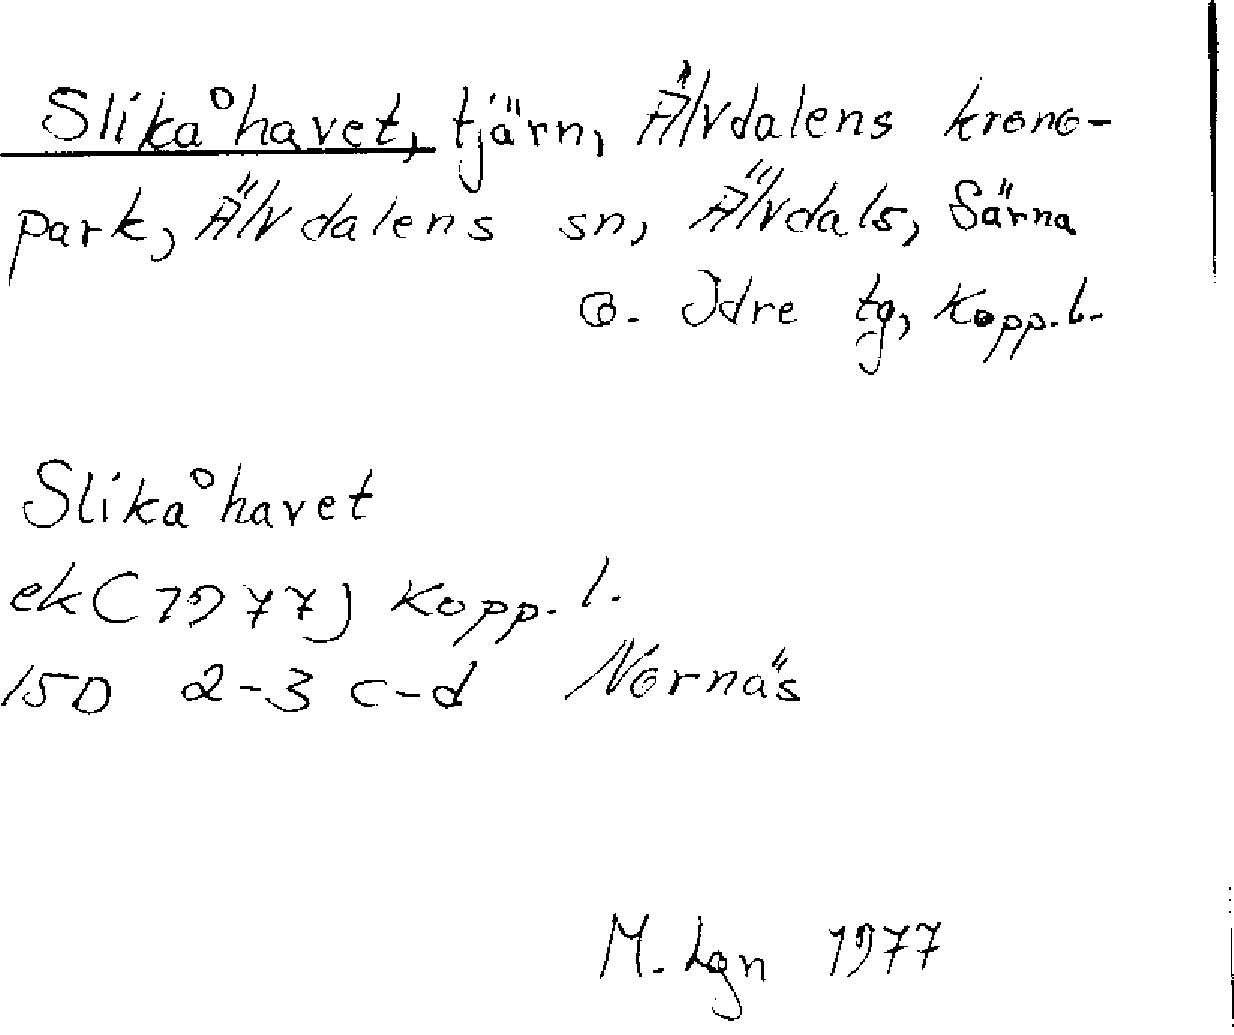 Slikåhavet, tjärn, Älvdalens krono-
park, Älvdalens sn, Älvdals, Särna
o. Idre tg, Kopp. l.
Slikåhavet
ek (1977) Kopp. l.
15D 2-3 c-d Nornäs
M. Lgn 1977